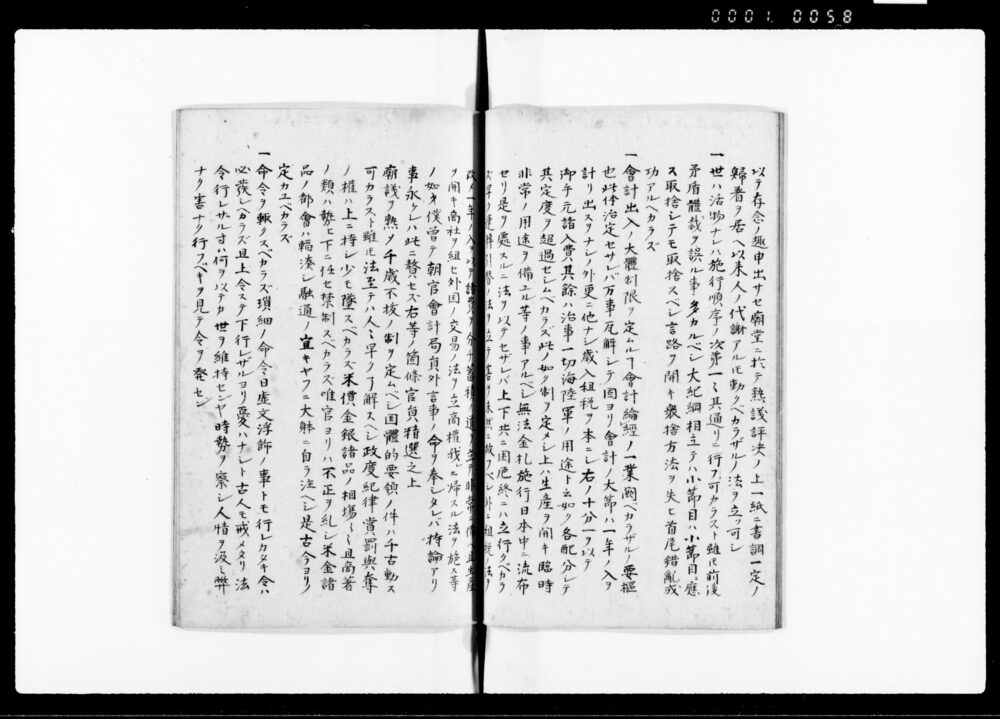 0001 0058
以テ存念ノ趣申出サセ廟堂ニ於テ熟議評決ノ上一紙ニ書調一定ノ
帰着ヲ居ヘ以来人ノ代謝アルモ動クベカラザルノ法ヲ立ツ可シ
一世ハ活物ナレハ施行順序ノ次第一々其通リニ行フ可カラスト雖モ前後
矛盾體裁ヲ誤ル事多カルベシ大紀綱相立テハ小節目ハ小節目ニ應
ス取捨シテモ取捨スベシ言路ヲ開キ褒捨方法ヲ失ヒ首尾錯亂成
功アルヘカラズ
一會計出入ノ大體制限ヲ定ムルヿ會計綸經ノ一業闕ベカラザルノ要樞
也此体治定セサレバ万事瓦解シテ困ヨリ會計ノ大節ハ一年ノ入ヲ
計リ出スヲナシノ外更ニ他ナシ歳入租税ヲ本ニシ右ノ十分一ヲ以テ
御手元諸入費其餘ハ治事一切海陸軍ノ用途ト云如ク各配分シテ
其定度ヲ超過セシムベカラズ此ノ如ク制ヲ定メシ上ハ生産ヲ開キ臨時
非常ノ用途ヲ備エル等ノ事アルベシ無法金札施行日本中ニ流布
セリ是ヲ處スルニ法ヲ以テセザレバ上下共ニ困厄終ニハ立行クベカラ
ヲ開キ商社ヲ組セ外国ノ交易ノ法ヲ立商權我レニ帰スル法ヲ施ス等
ノ如キ僕曽テ朝官會計局員外言事ノ命ヲ奉シタレバ持論アリ
事永ケレハ此ニ贅セズ右等ノ箇條官員精選之上
廟議ヲ熟メ千歳不抜ノ制ヲ定ムベシ国體的要領ノ件ハ千古動ス
可カラスト雖モ法至テハ人々早ク了解スヘシ政度紀律賞罰與奪
ノ權ハ上ニ持シ少モ墜スベカラズ米價金銀諸品ノ相場々々且高著
ノ類ハ勢ヒ下ニ任セ禁制スベカラズ唯官ヨリハ不正ヲ糺シ米金諸
品ノ都會ハ輻湊シ融通ノ宜キヤフニ大躰ニ自ラ注ヘシ是古今ヨリ
定カユベカラズ
一命令ヲ輙クスベカラズ瑣細ノ命令日虚文浮飾ノ事トモ行レカタキ令ハ
必發レベカラズ且上令ステ下行レザルヨリ憂ハナシト古人モ戒メタリ法
令行レサル寸ハ何ヲ以テカ世ヲ維持センヤ時勢ヲ察シ人情ヲ汲ミ弊
ナク害ナク行フベキヲ見テ令ヲ発セン